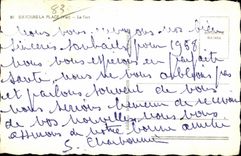 83
Nous vous envoyons nos bien
sincères souhaits pour 1958
Nous vous espérons en parfaite
santé. Nous ne vous oublions pas
et parlons souvent de vous
nous serons heureux de recevoir
de vos nouvelles. Nous vous
assurons de notre bonne amitié
S. Charbonnier